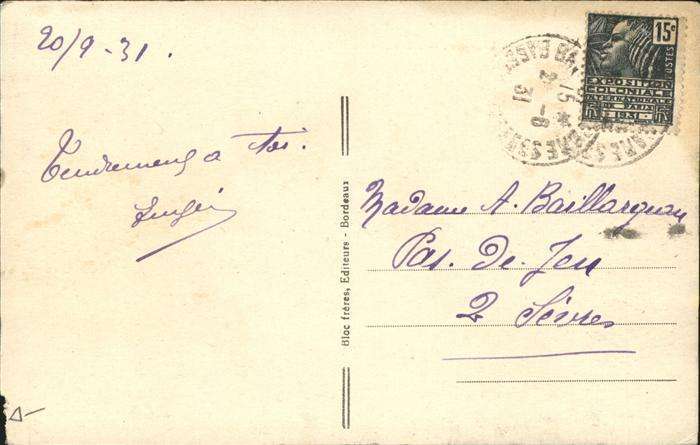 20/9-31.
Tendrement à toi.
Bloc frères, Editeurs - Bordeaux
15c
POSTES
EXPOSITION
COLONIALE
INTERNATIONALE
PARIS
1931
15
2-8
31
Madame A. Baillargeau
Pas. de. Jeu
2 Sèvres